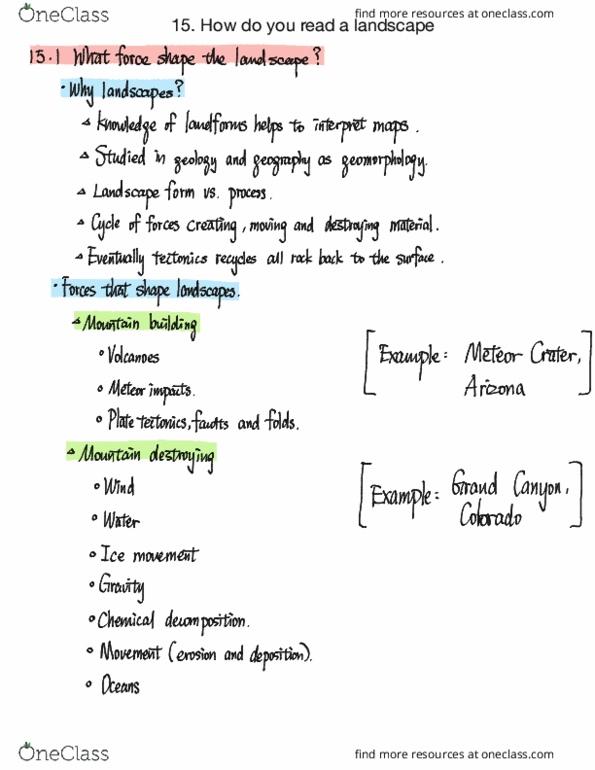 OneClass
find more resources at oneclass.com
15. How do you read a landscape
15.1 What force shape the landscape?
• Why landscapes?
▵ Knowledge of landforms helps to interpret maps.
▵ Studied in geology and geography as geomorphology.
▵ Landscape form vs. process.
▵ Cycle of forces creating, moving and destroying material.
▵ Eventually tectonics recycles all rock back to the surface.
• Forces that shape landscapes.
▵ Mountain building
◦ Volcanoes
◦ Meteor impacts.
◦ Plate tectonics, faults and folds.
[Example: Meteor Crater,
Arizona]
▵ Mountain destroying
◦ Wind
◦ Water
◦ Ice movement
◦ Gravity
◦ Chemical decomposition.
◦ Movement (erosion and deposition).
◦ Oceans
[Example: Grand Canyon,
Colorado]
OneClass
find more resources at oneclass.com